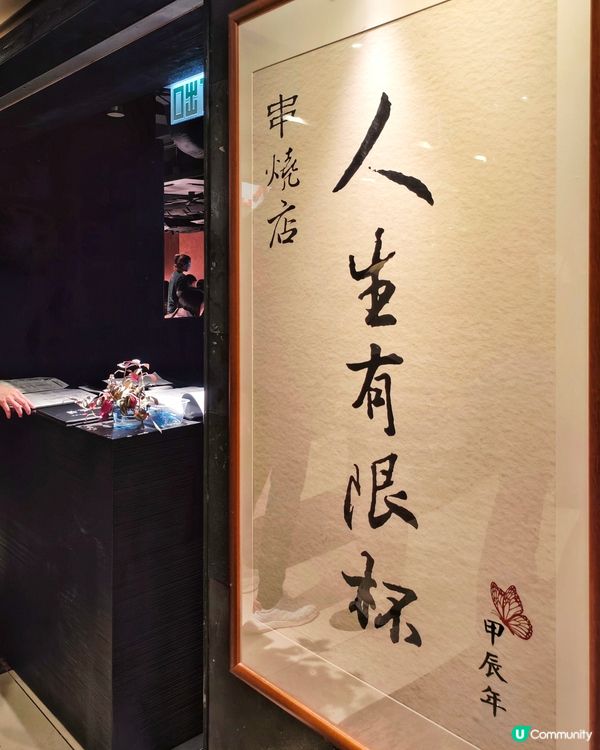 人生有限杯
串燒店
甲辰年
出口
U Community